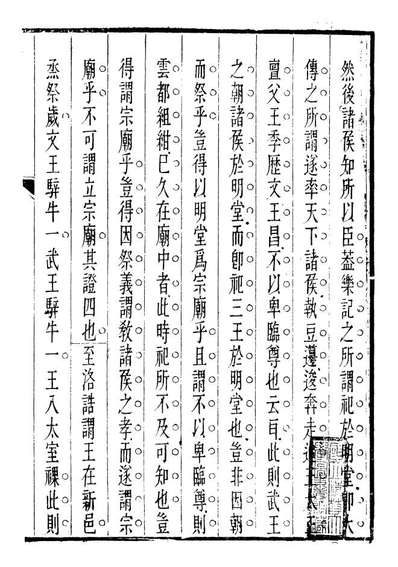 然後諸侯知所以臣葢樂記之所謂祀於明堂即大
傳之所謂遂率天下諸侯執豆籩逡奔走追王太王
亶父王季歷文王昌不以卑臨尊也云耳此則武王
之朝諸侯於明堂而卽祀三王於明堂也豈非因朝
而祭乎豈得以明堂爲宗廟乎且謂不以卑臨尊則
雲都組紺巳久在廟中者此時祀所不及可知也豈
得謂宗廟乎豈得因祭義謂敎諸侯之孝而遂謂宗
廟乎不可謂立宗廟其證四也至洛誥謂王在新邑
烝祭歲文王騂牛一武王騂牛一王入太室祼此則